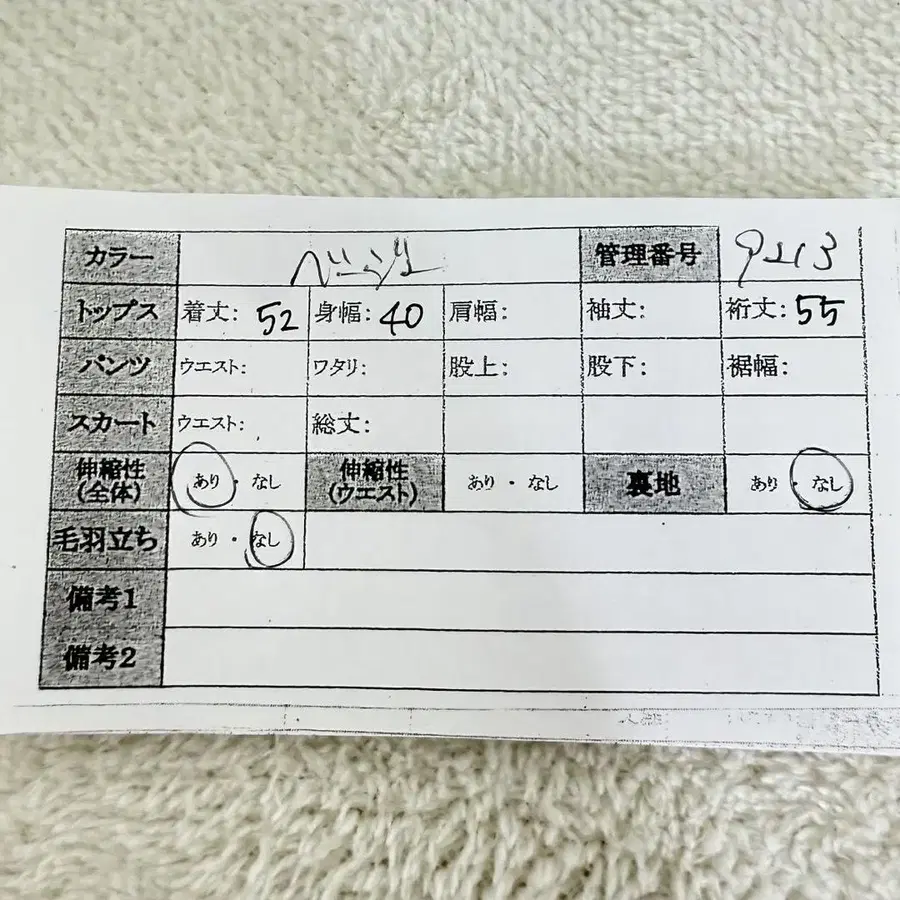 カラー ベージュ 管理番号 9213
トップス 着丈: 52 身幅: 40 肩幅: 袖丈: 裄丈: 55
パンツ ウエスト: ワタリ: 股上: 股下: 裾幅:
スカート ウエスト: 総丈:
伸縮性(全体) あり・なし 伸縮性(ウエスト) あり・なし 裏地 あり・なし
毛羽立ち あり・なし
備考1
備考2